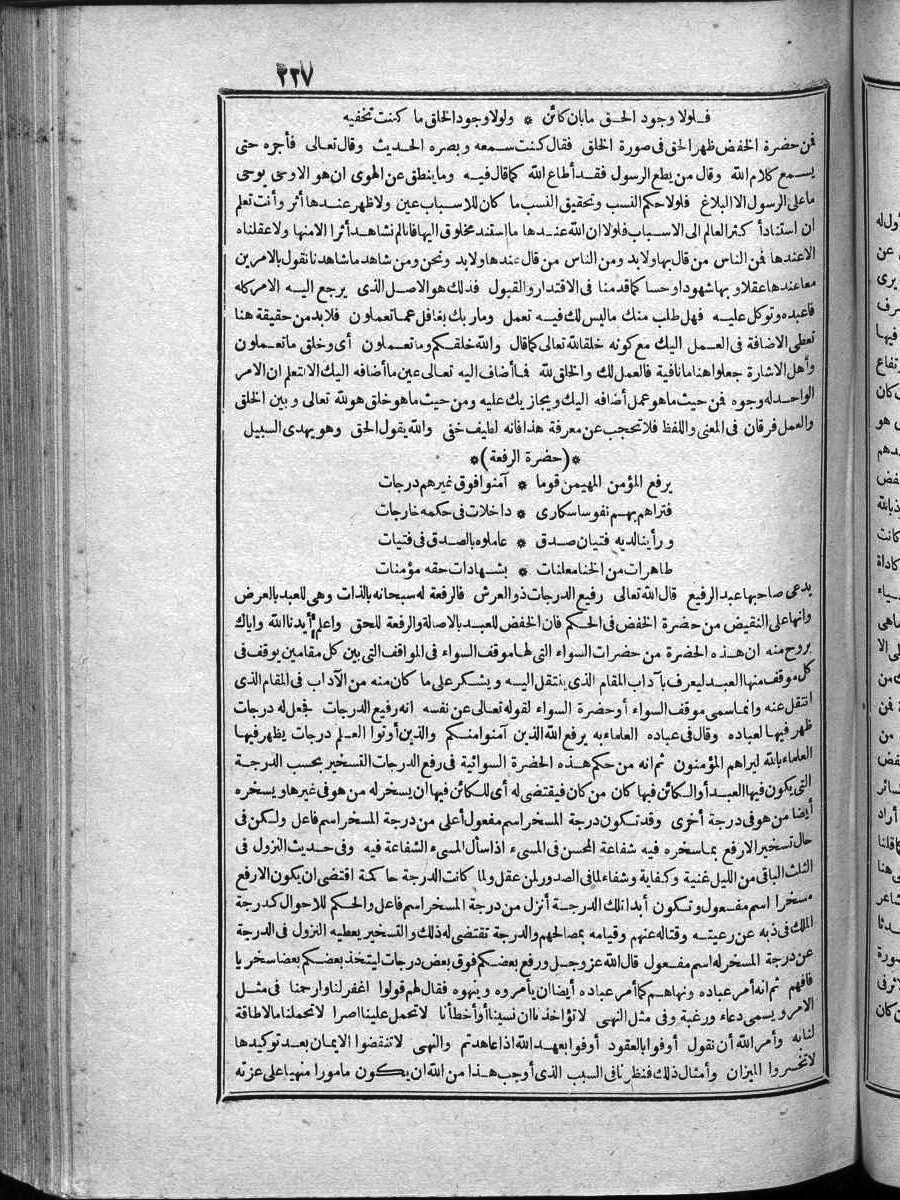 ٢٢٧
فلولا وجود الحق مابان كائن * ولولا وجود الخلق ما كنت تخفيه
فمن حضرة الخفض ظهر الحق فى صورة الخلق فقال كنت سمعه وبصره الحديث وقال تعالى فأجره حتى
يسمع كلام الله وقال من يطع الرسول فقد أطاع الله كما قال فيه وما ينطق عن الهوى ان هو الاوحى يوحى
ما على الرسول الا البلاغ فلولا حكم النسب وتحقيق النسب ما كان للاسباب عين ولا ظهر عندها أثر وأنت تعلم
ان استناد أكثر العالم الى الاسباب فلولا ان الله عندها ما استند مخلوق اليها فانالم نشاهد أثرا الامنها ولا عقلناه
الاعندها فمن الناس من قال بها ولابد ومن الناس من قال عندها ولابد ونحن ومن شاهد ما شاهدنا نقول بالامرين
معا عندها عقلا وبها شهودا وحسا كما قدمنا فى الاقتدار والقبول فذلك هو الاصل الذى يرجع اليه الامر كله
فاعبده وتوكل عليه فهل طلب منك ماليس لك فيه تعمل وما ربك بغافل عما تعملون فلابد من حقيقة هنا
تعطى الاضافة فى العمل اليك مع كونه خلقا لله تعالى كما قال والله خلقكم وما تعملون أى وخلق ما تعملون
وأهل الاشارة جعلوا هنا ما نافية فالعمل لك والخلق لله فما أضاف اليه تعالى عين ما أضافه اليك الا لتعلم ان الامر
الواحد له وجوه فمن حيث ما هو عمل أضافه اليك ويجازيك عليه ومن حيث ما هو خلق هو لله تعالى وبين الخلق
والعمل فرقان فى المعنى واللفظ فلا تحجب عن معرفة هذا فانه لطيف خفى والله يقول الحق وهو يهدى السبيل
*(حضرة الرفعة)*
يرفع المؤمن المهيمن قوما * آمنوا فوق غيرهم درجات
فتراهم بهم نفوسا سكارى * داخلات فى حكمه خارجات
ورأينا لديه فتيان صدق * عاملوه بالصدق فى فتيات
طاهرات من الخنا معلنات * بشهادات حقه مؤمنات
يدعى صاحبها عبد الرفيع قال الله تعالى رفيع الدرجات ذو العرش فالرفعة له سبحانه بالذات وهى للعبد بالعرض
وانها على النقيض من حضرة الخفض فى الحكم فان الخفض للعبد بالاصالة والرفعة للحق واعلم أيدنا الله واياك
بروح منه ان هذه الحضرة من حضرات السواء التى لها موقف السواء فى المواقف التى بين كل مقامين يوقف فى
كل موقف منها العبد ليعرف بآداب المقام الذى ينتقل اليه ويشكر على ما كان منه من الآداب فى المقام الذى
انتقل عنه وانما سمى موقف السواء أو حضرة السواء لقوله تعالى عن نفسه انه رفيع الدرجات فجعل له درجات
ظهر فيها لعباده وقال فى عباده العلماء به يرفع الله الذين آمنوا منكم والذين أوتوا العلم درجات يظهر فيها
العلماء بالله ليراهم المؤمنون ثم انه من حكم هذه الحضرة السوائية فى رفع الدرجات التسخير بحسب الدرجة
التى يكون فيها العبد أو الكائن فيها كان من كان فيقتضى له أى للكائن فيها ان يسخر له من هو فى غيرها ويسخره
أيضا من هو فى درجة أخرى وقد تكون درجة المسخر اسم مفعول أعلى من درجة المسخر اسم فاعل ولكن فى
حال تسخير الارفع بما سخره فيه شفاعة المحسن فى المسىء اذا سأل المسىء الشفاعة فيه وفى حديث النزول فى
الثلث الباقى من الليل غنية وكفاية وشفاء لما فى الصدور لمن عقل ولما كانت الدرجة حاكمة اقتضى ان يكون الارفع
مسخرا اسم مفعول وتكون أبدا تلك الدرجة أنزل من درجة المسخر اسم فاعل والحكم للاحوال كدرجة
الملك فى ذبه عن رعيته وقتاله عنهم وقيامه بمصالحهم والدرجة تقتضى له ذلك والتسخير يعطيه النزول فى الدرجة
عن درجة المسخر له اسم مفعول قال الله عز وجل ورفع بعضكم فوق بعض درجات ليتخذ بعضكم بعضا سخريا
فافهم ثم انه أمر عباده ونهاهم كما أمر عباده أيضا ان يأمروه وينهوه فقال لهم قولوا اغفر لنا وارحمنا فى مثل
الامر ويسمى دعاء ورغبة وفى مثل النهى لا تؤاخذنا ان نسينا أو أخطأنا لا تحمل علينا اصرا لا تحملنا مالا طاقة
لنا به وأمر الله أن نقول أوفوا بالعقود أوفوا بعهد الله اذا عاهدتم والنهى لا تنقضوا الايمان بعد توكيدها
لا تخسروا الميزان وأمثال ذلك فنظرنا فى السبب الذى أوجب هذا من الله ان يكون مأمورا منهيا على عزته